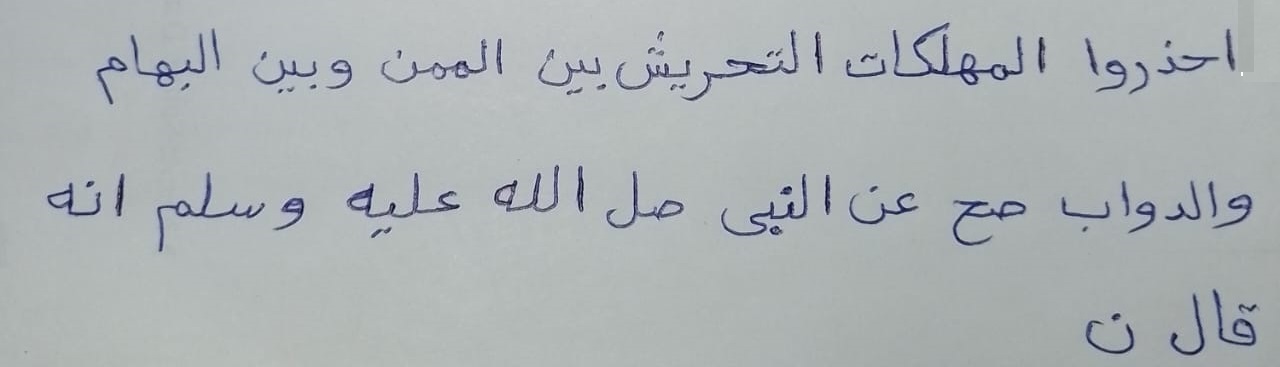 احذروا المهلكات التحريش بين الممن وبين البهام
والدواب صح عن النبي صل الله عليه وسلم انه
قال ن